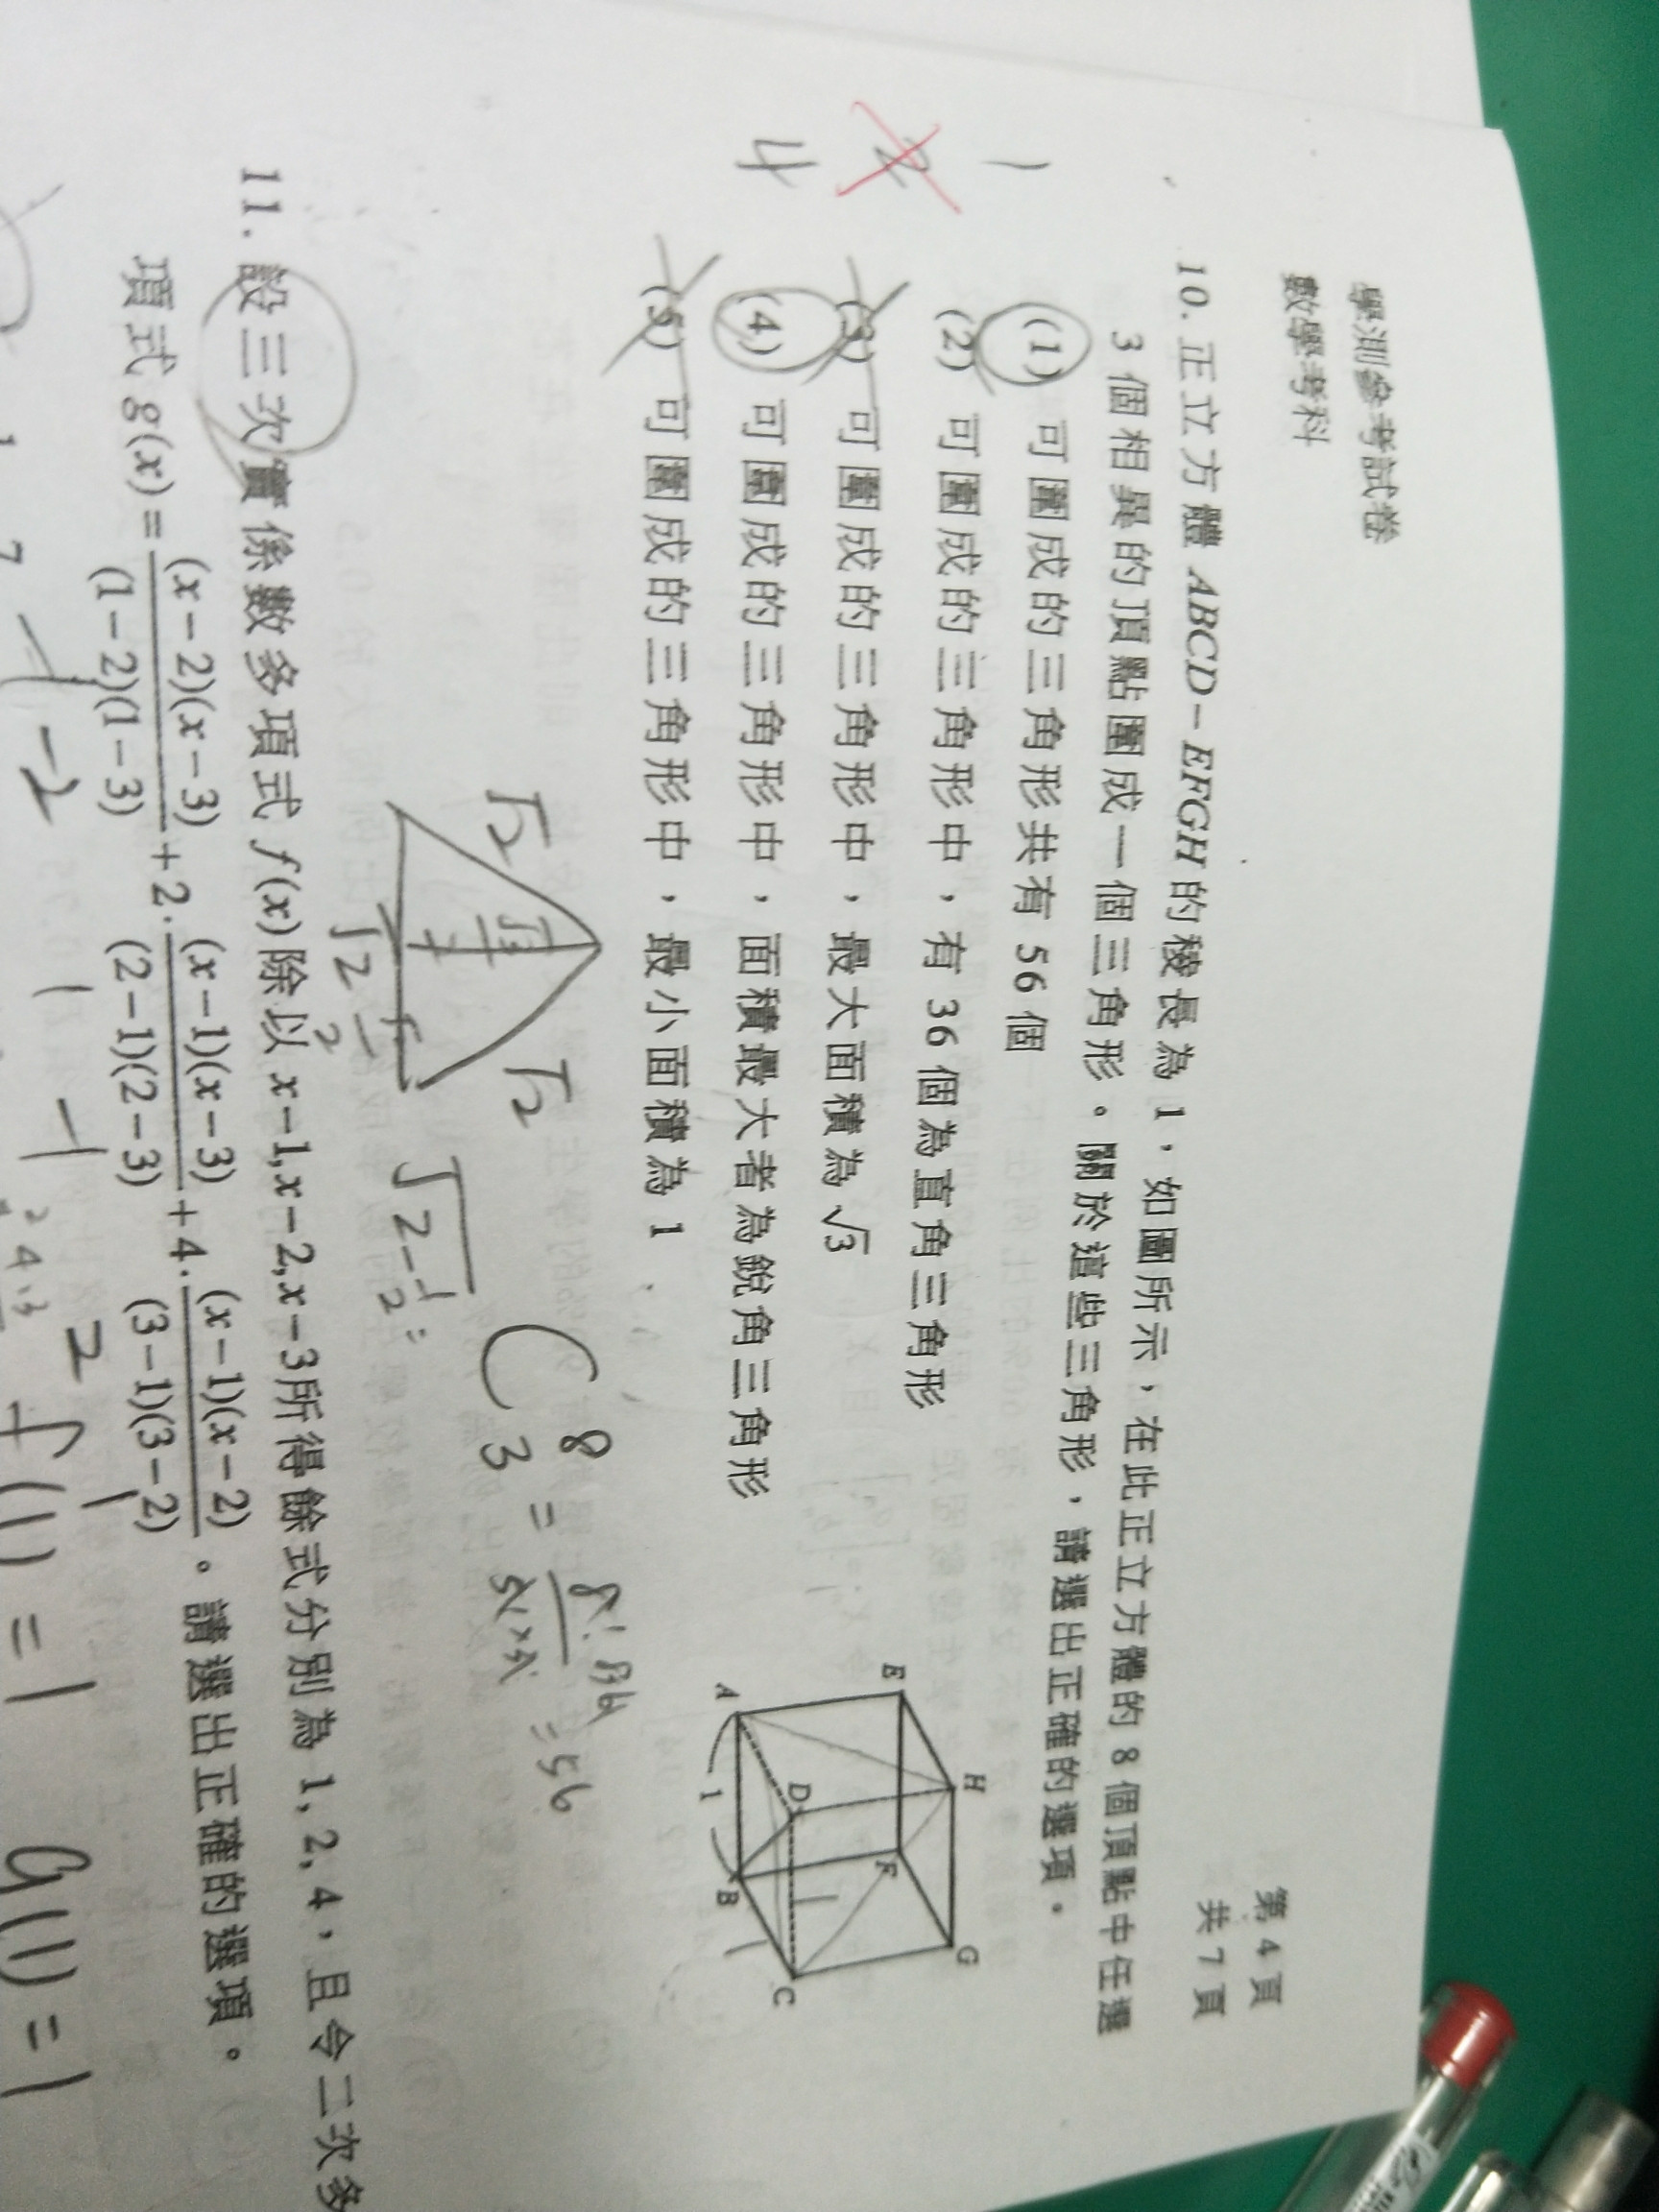 學測參考試卷
數學考科
第 4 頁
共 7 頁
10. 正立方體 ABCD－EFGH 的稜長為 1，如圖所示，在此正立方體的 8 個頂點中任選
3 個相異的頂點圍成一個三角形。關於這些三角形，請選出正確的選項。
(1) 可圍成的三角形共有 56 個
(2) 可圍成的三角形中，有 36 個為直角三角形
(3) 可圍成的三角形中，最大面積為 √3
(4) 可圍成的三角形中，面積最大者為銳角三角形
(5) 可圍成的三角形中，最小面積為 1
1
2
4
E
H
F
G
A
D
B
C
1
√2
√2
√2
√2-1/2 =
C 8 3 = 8! = 56
11. 設三次實係數多項式 f(x) 除以 x－1, x－2, x－3 所得餘式分別為 1, 2, 4，且令二次多
項式 g(x) = (x－2)(x－3)/(1－2)(1－3) + 2·(x－1)(x－3)/(2－1)(2－3) + 4·(x－1)(x－2)/(3－1)(3－2)。請選出正確的選項。
-2
-1
2
1
f(1) = 1
g(1) = 1